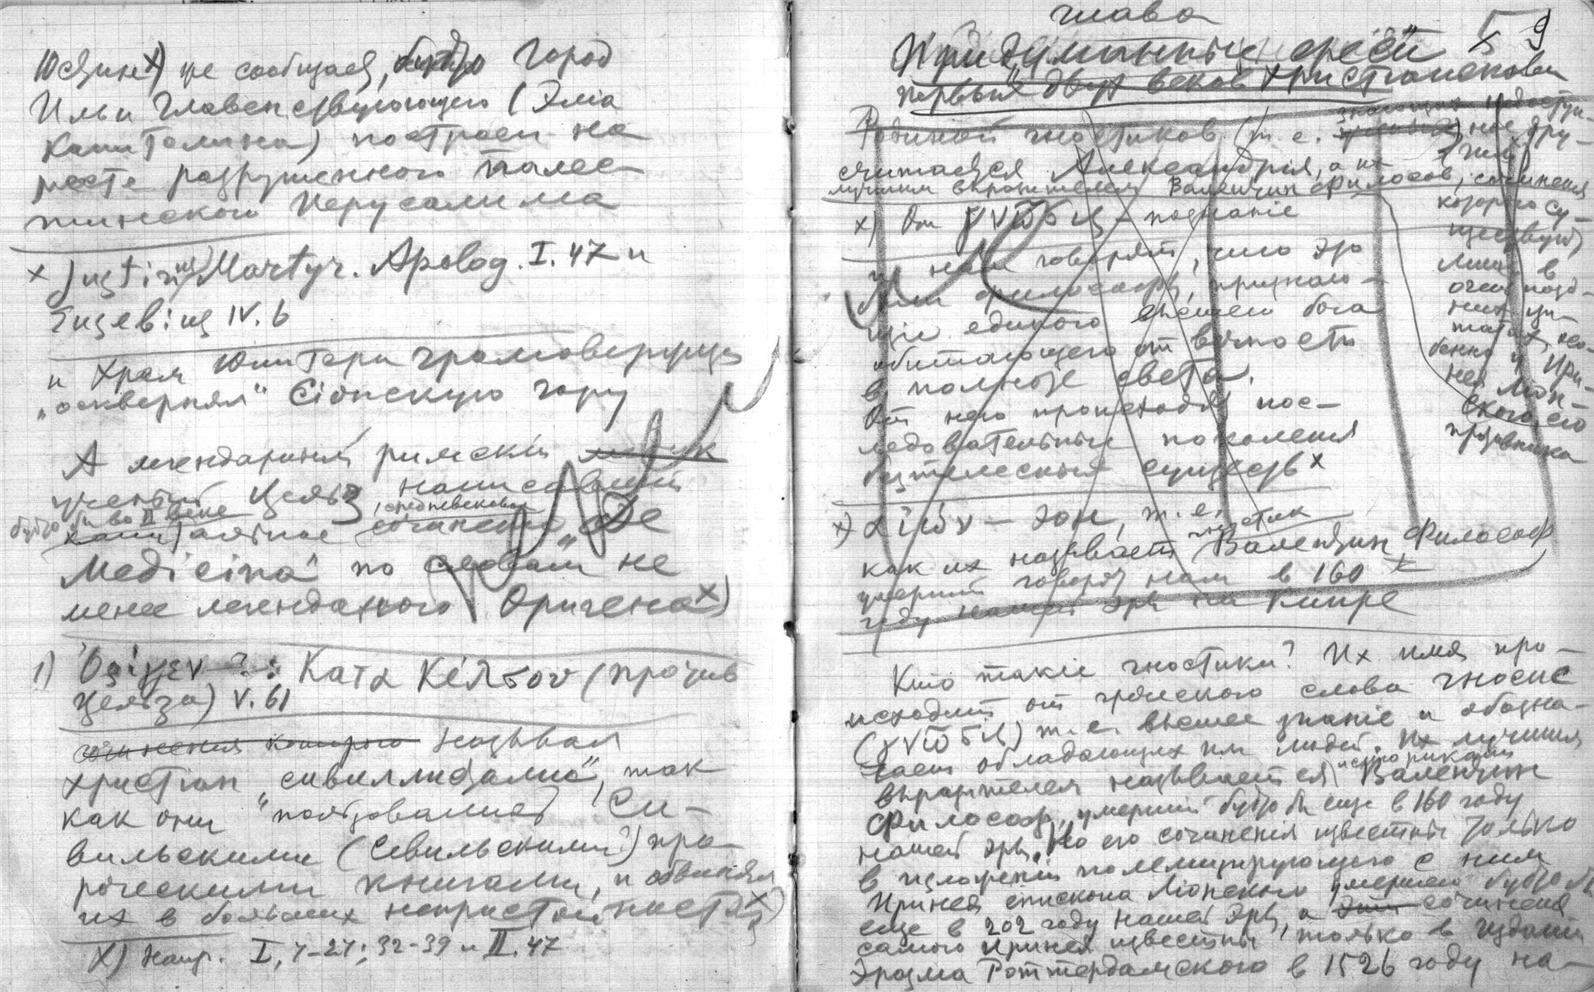 Юстин x) уже сообщает, будто город
Ильи Главенствующего (Эліа
Капитолина) построен на
месте разрушенного палес-
тинского Иерусалима
x Justinus Martyr. Apolog. I. 47 и
Eusebius IV. 6
и храм Юпитера громовержца
„осквернял“ Сіонскую гору
А легендарный римскій
ученый Цельз, написавший
будто бы во II веке средневековое
сочинение „De
Medicina“ по словам не
менее легендарного Оригена x)
1) : Κατα Κέλσου (против
Цельза) V. 61
сочинения которого называл
христіан „сивиллистами“, так
как они "пользовались Си-
вильскими (Севильскими?) про-
роческими книгами, и обвинял
их в больших непристойностях x)
X) Напр. I, 7-27; 32-39 и II. 47
глава
59
Придуманные ереси
первых двух веков христіанского
Родиной гностиков (т. е.
считается Александрія, а их
лучшим выразителем Валентин философ, сочинения
которого су-
ществуют
лишь в
очень позд-
них ци-
татах, осо-
бенно у Ири-
нея Лион-
ского, его
противника
x) От γνῶσις – познаніе
и нам говорят, что это
были философы, признаю-
щіе единого высшего бога
обитающего от вечности
в полноте света.
От него происходят пос-
ледовательныя поколения
бестелесных существ x
x) αἰών – эон, т. е.
как их называет гностик Валентин, философ
умерший говорят нам в 160
году нашей эры на Кипре
Кто такіе гностики? Их имя про-
исходит от греческого слова гносис
(γνῶσις) т. е. высшее знаніе и обозна-
чает обладающих им людей. Их лучшим
выразителем называется историками Валентин
философ, умерший будто бы еще в 160 году
нашей эры. Но его сочинения известны только
в изложеніи полемизирующего с ним
Иринея епископа Ліонского умершего будто бы
еще в 202 году нашей эры, а сочинения
самого Иринея известны только в издании
Эразма Роттердамского в 1526 году на-